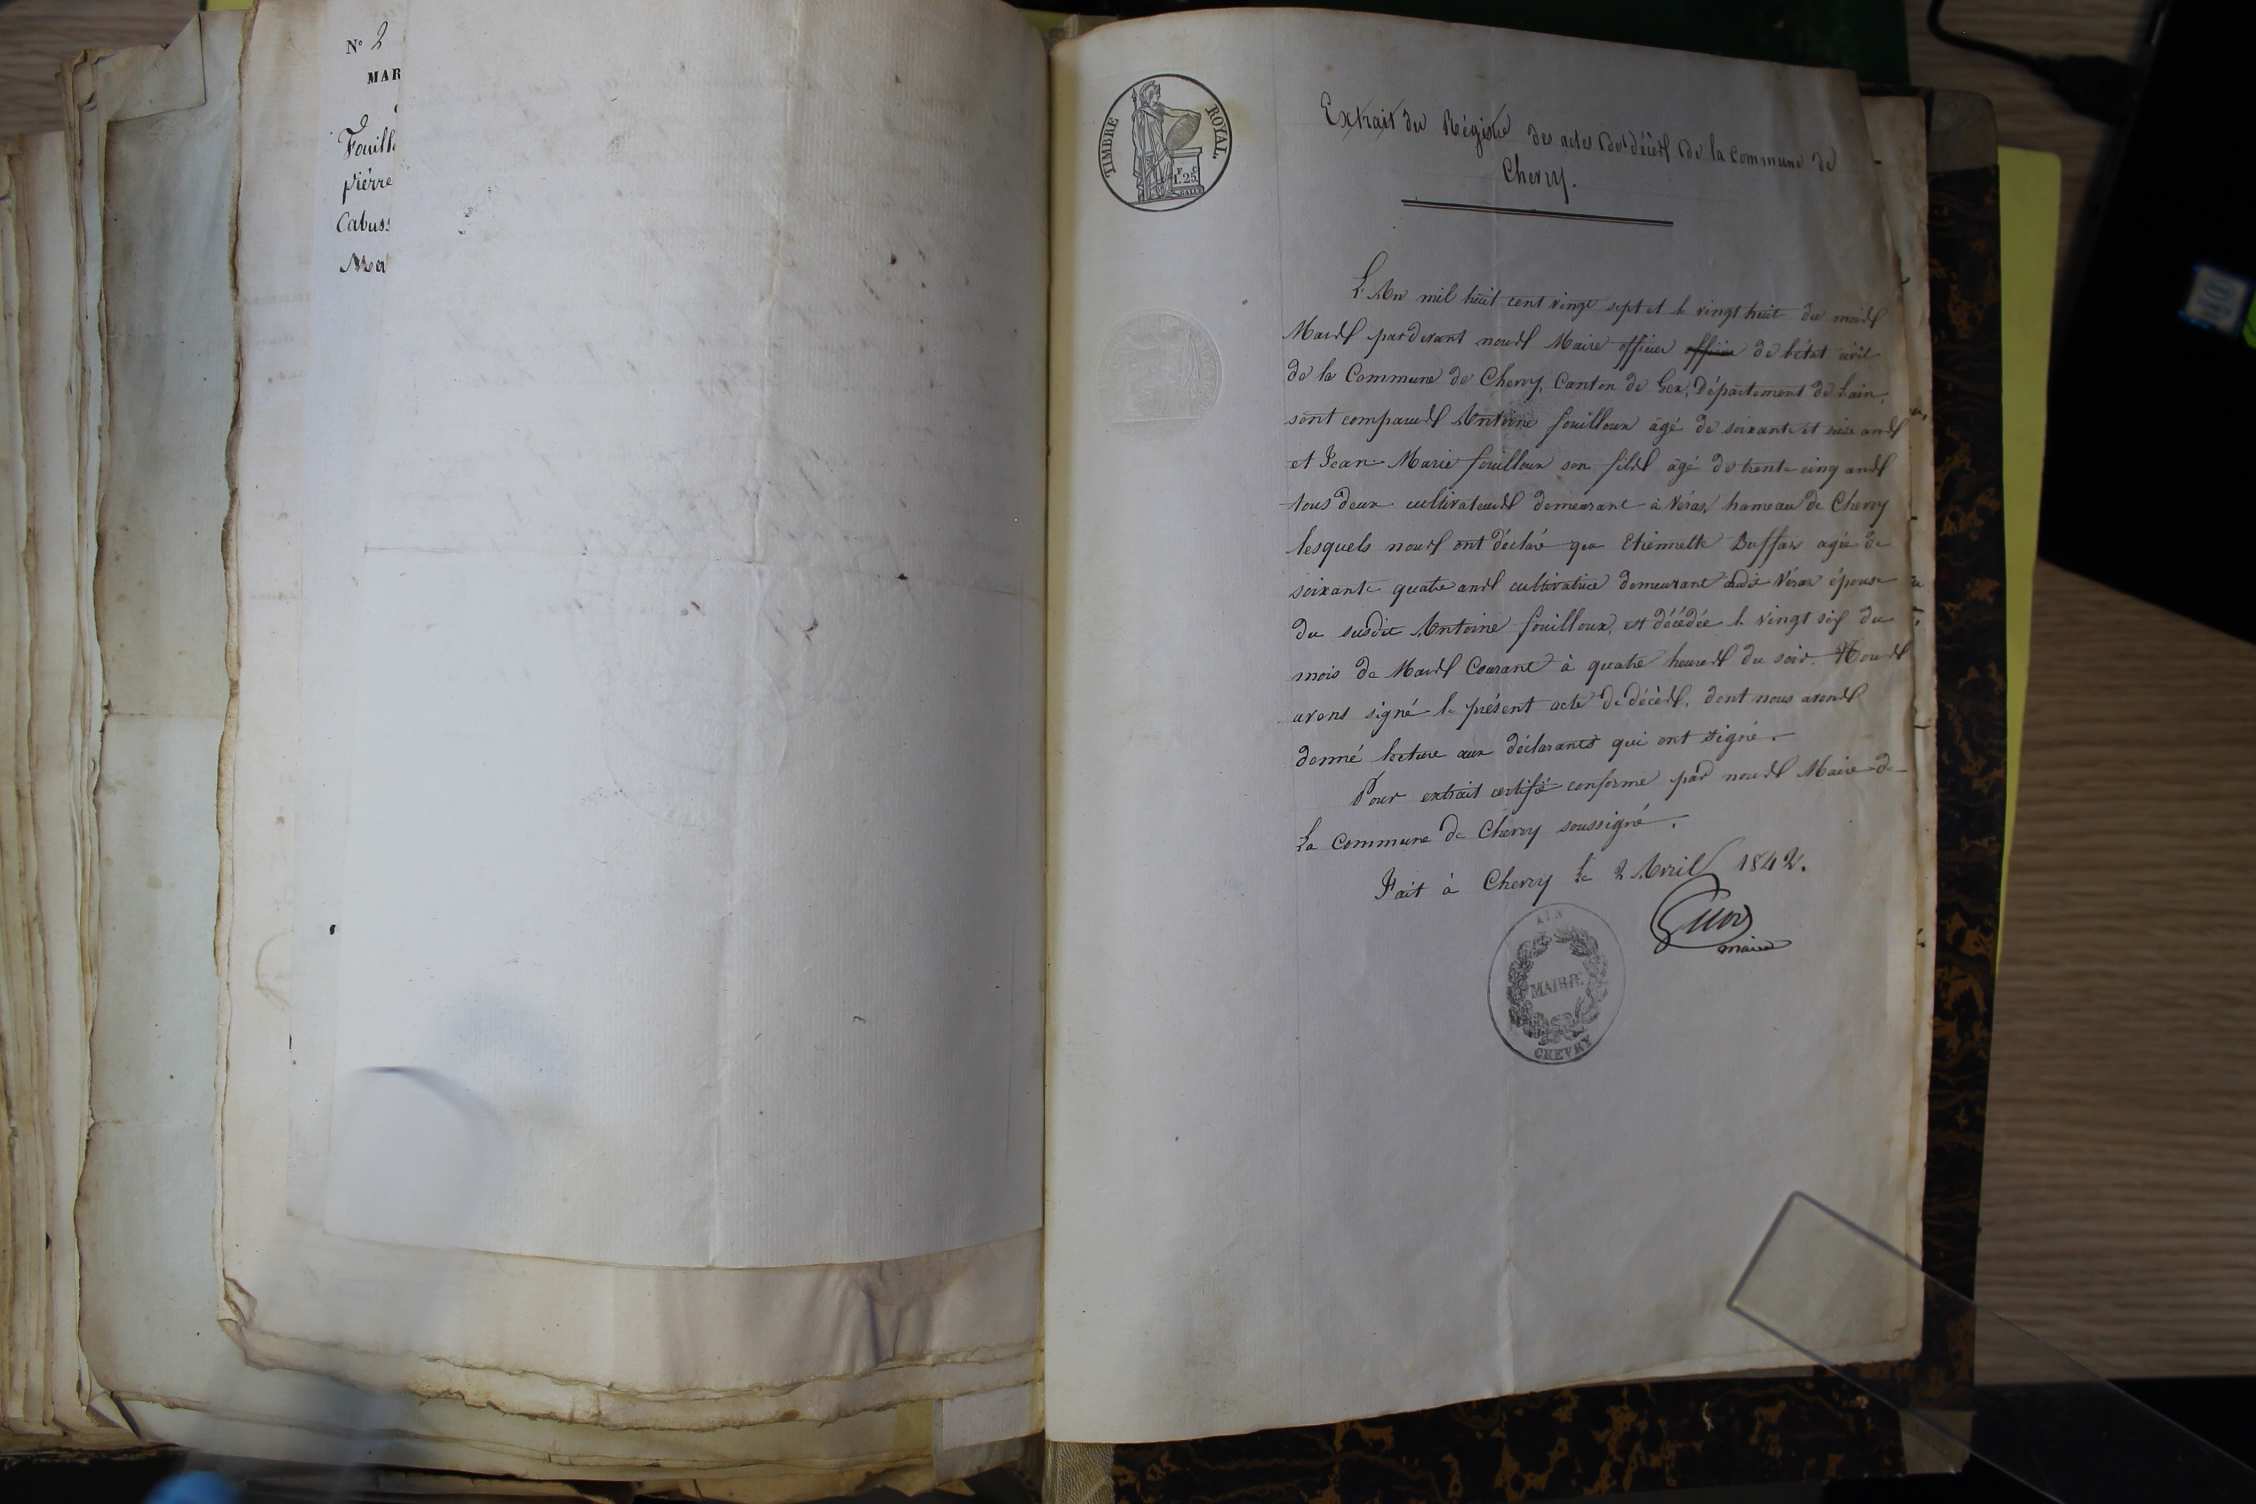 N° 2
MAR
Fouill
pierre
Cabuss
Mar
TIMBRE ROYAL.
1F.25C
Extrait du Régistre des actes de décès de la commune de
Chevry.
L'An mil huit cent vingt sept et le vingt huit du mois
Mars par devant nous Maire officier officier de l'état civil
de la Commune de Chevry, Canton de Gex, Département de l'ain,
sont comparus Antoine fouilloux âgé de soixante et seize ans
et Jean Marie fouilloux son fils âgé de trente cinq ans
tous deux cultivateurs demeurant à Véraz, hameau de Chevry
lesquels nous ont déclaré que Etiennette Buffaz agée de
soixante quatre ans cultivatrice demeurant audit Véraz épouse
du susdit Antoine fouilloux, est décédée le vingt six du
mois de Mars Courant à quatre heures du soir. Nous
avons signé le présent acte de décès, dont nous avons
donné lecture aux déclarants qui ont signé.
Pour extrait certifié conforme par nous Maire de
La Commune de Chevry soussigné.
Fait à Chevry le 2 Avril 1842.
maire
AIN
MAIRIE
CHEVRY